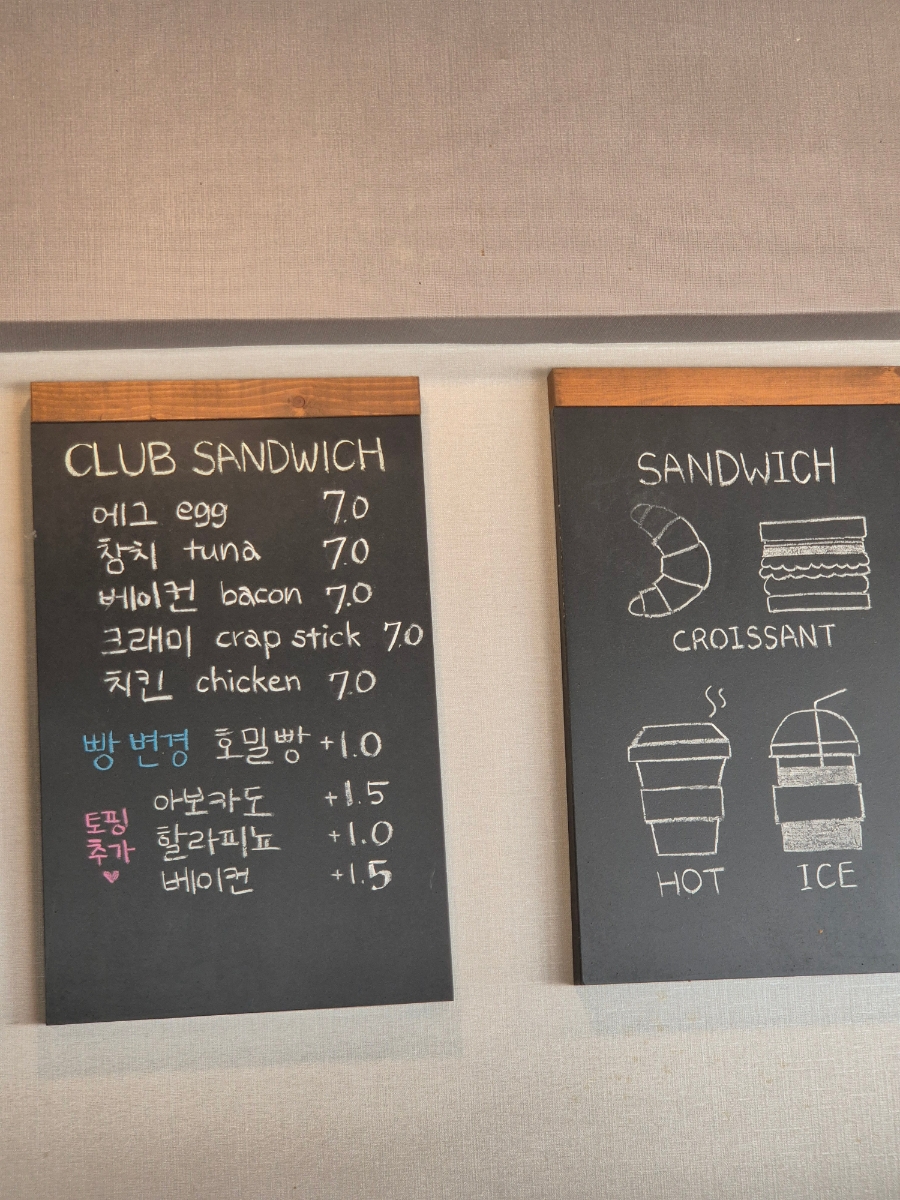 CLUB SANDWICH
에그 egg 7.0
참치 tuna 7.0
베이컨 bacon 7.0
크래미 crap stick 7.0
치킨 chicken 7.0
빵 변경 호밀빵 +1.0
토핑 추가 ♥
아보카도 +1.5
할라피뇨 +1.0
베이컨 +1.5
SANDWICH
CROISSANT
HOT ICE